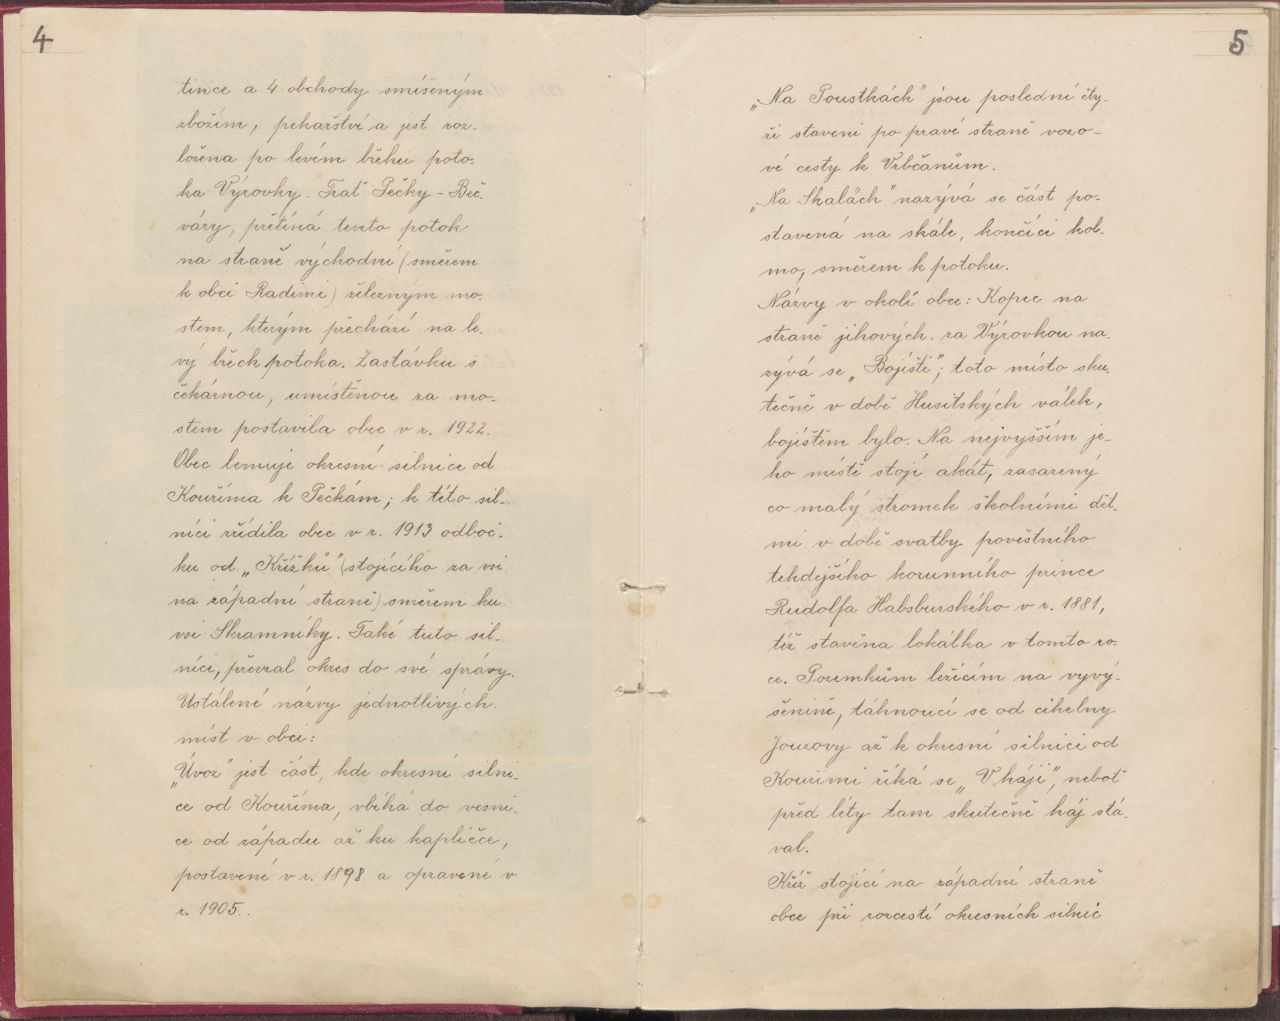 4
tince a 4 obchody smíšeným
zbožím, pekařství a jest roz-
ložena po levém břehu poto-
ka Výrovky. Trať Pečky - Beč-
váry, přetíná tento potok
na straně východní (směrem
k obci Radimi) železným mo-
stem, kterým přechází na le-
vý břeh potoka. Zastávku s
čekárnou, umístěnou za mo-
stem postavila obec v r. 1922.
Obec lemuje okresní silnice od
Kouřima k Pečkám; k této sil-
nici zřídila obec v r. 1913 odboč-
ku od „Křížků" (stojícího za vsi
na západní straně) směrem ku
vsi Skramníky. Také tuto sil-
nici, převzal okres do své správy.
Ustálené názvy jednotlivých
míst v obci:
„Úvoz" jest část, kde okresní silni-
ce od Kouříma, vbíhá do vesni-
ce od západu až ku kapličce,
postavené v r. 1898 a opravené v
r. 1905.
5
„Na Poustkách" jsou poslední čty-
ři staveni po pravé straně vozo-
vé cesty k Vrbčanům.
„Na Skalách" nazývá se část po-
stavená na skále, končíci kol-
mo, směrem k potoku.
Názvy v okolí obce: Kopec na
straně jihových. za Výrovkou na-
zývá se „Bojiště"; toto místo sku-
tečně v době Husitských válek,
bojištěm bylo. Na nejvyšším je-
ho místě stojí akát, zasazený
co malý stromek školními dět-
mi v době svatby pověstného
tehdejšího korunního prince
Rudolfa Habsburského v r. 1881,
též stavěna lokálka v tomto ro-
ce. Pozemkům ležícím na vyvý-
šenině, táhnoucí se od cihelny
Jouzovy až k okresní silnici od
Kouřimi říká se „V háji", neboť
před léty tam skutečně háj stá-
val.
Kříž stojící na západní straně
obce při rozcestí okresních silnic